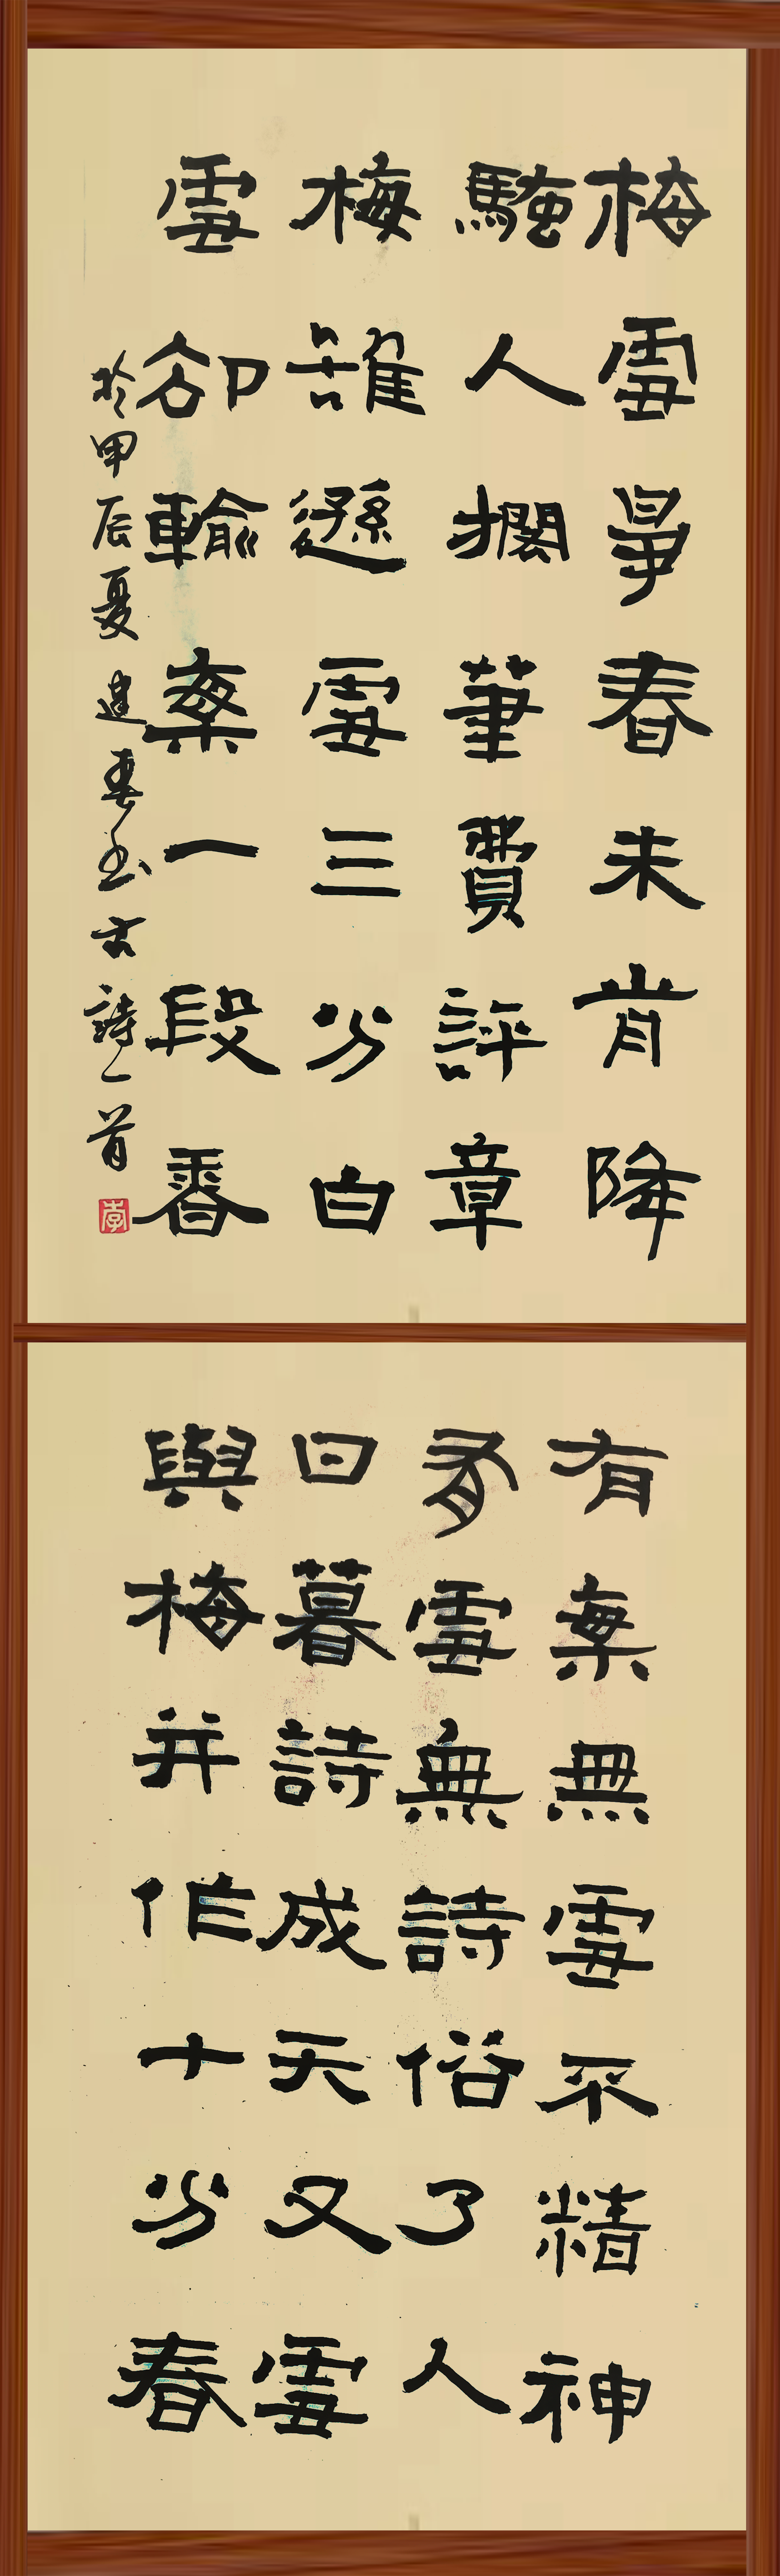 梅雪爭春未肯降
騷人擱筆費評章
梅雖遜雪三分白
雪卻輸梅一段香
於甲辰夏建书古詩一首
李
有梅無雪不精神
有雪無詩俗了人
日暮詩成天又雪
與梅并作十分春